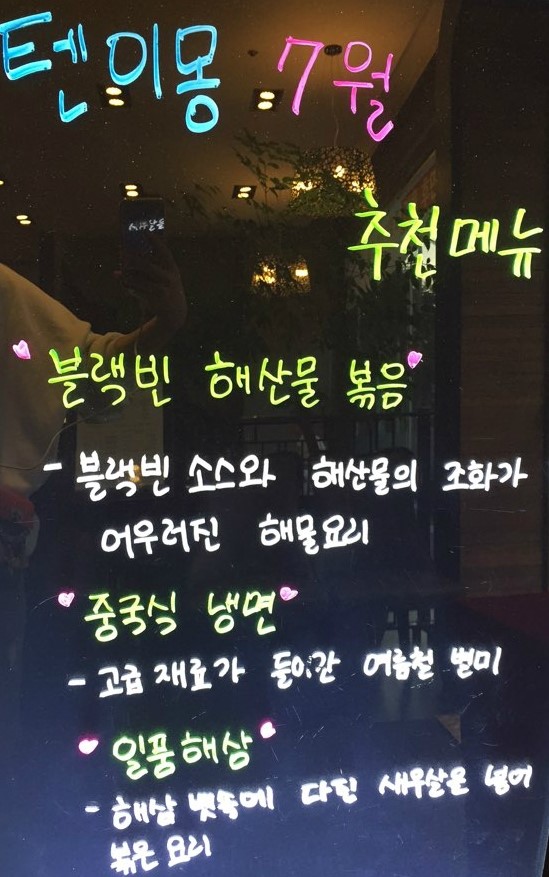 텐이몽 7월
추천메뉴
블랙빈 해산물 볶음
- 블랙빈 소스와 해산물의 조화가
어우러진 해물요리
중국식 냉면
- 고급 재료가 들어간 여름철 별미
일품해삼
- 해삼 뱃속에 다진 새우살을 넣어
볶은 요리